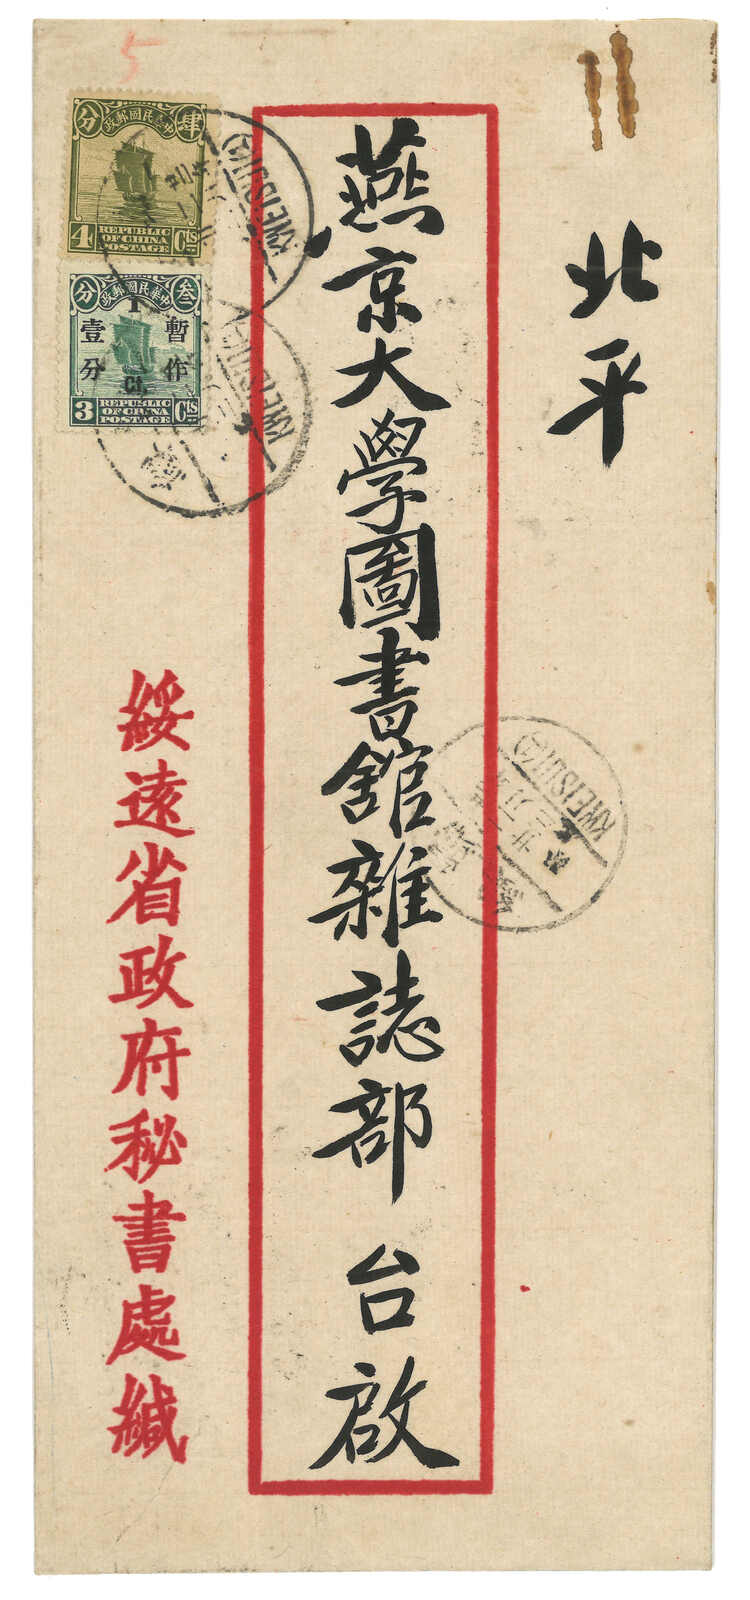 北平
燕京大學圖書館雜誌部 台啟
綏遠省政府秘書處緘
5
政郵國民華中
分 肆
REPUBLIC
OF CHINA
POSTAGE
4 Cts
政郵國民華中
分 叁
1
暫作
壹分
Ct.
REPUBLIC
OF CHINA
POSTAGE
3 Cts
KWEISUI
KWEISUI
KWEISUI